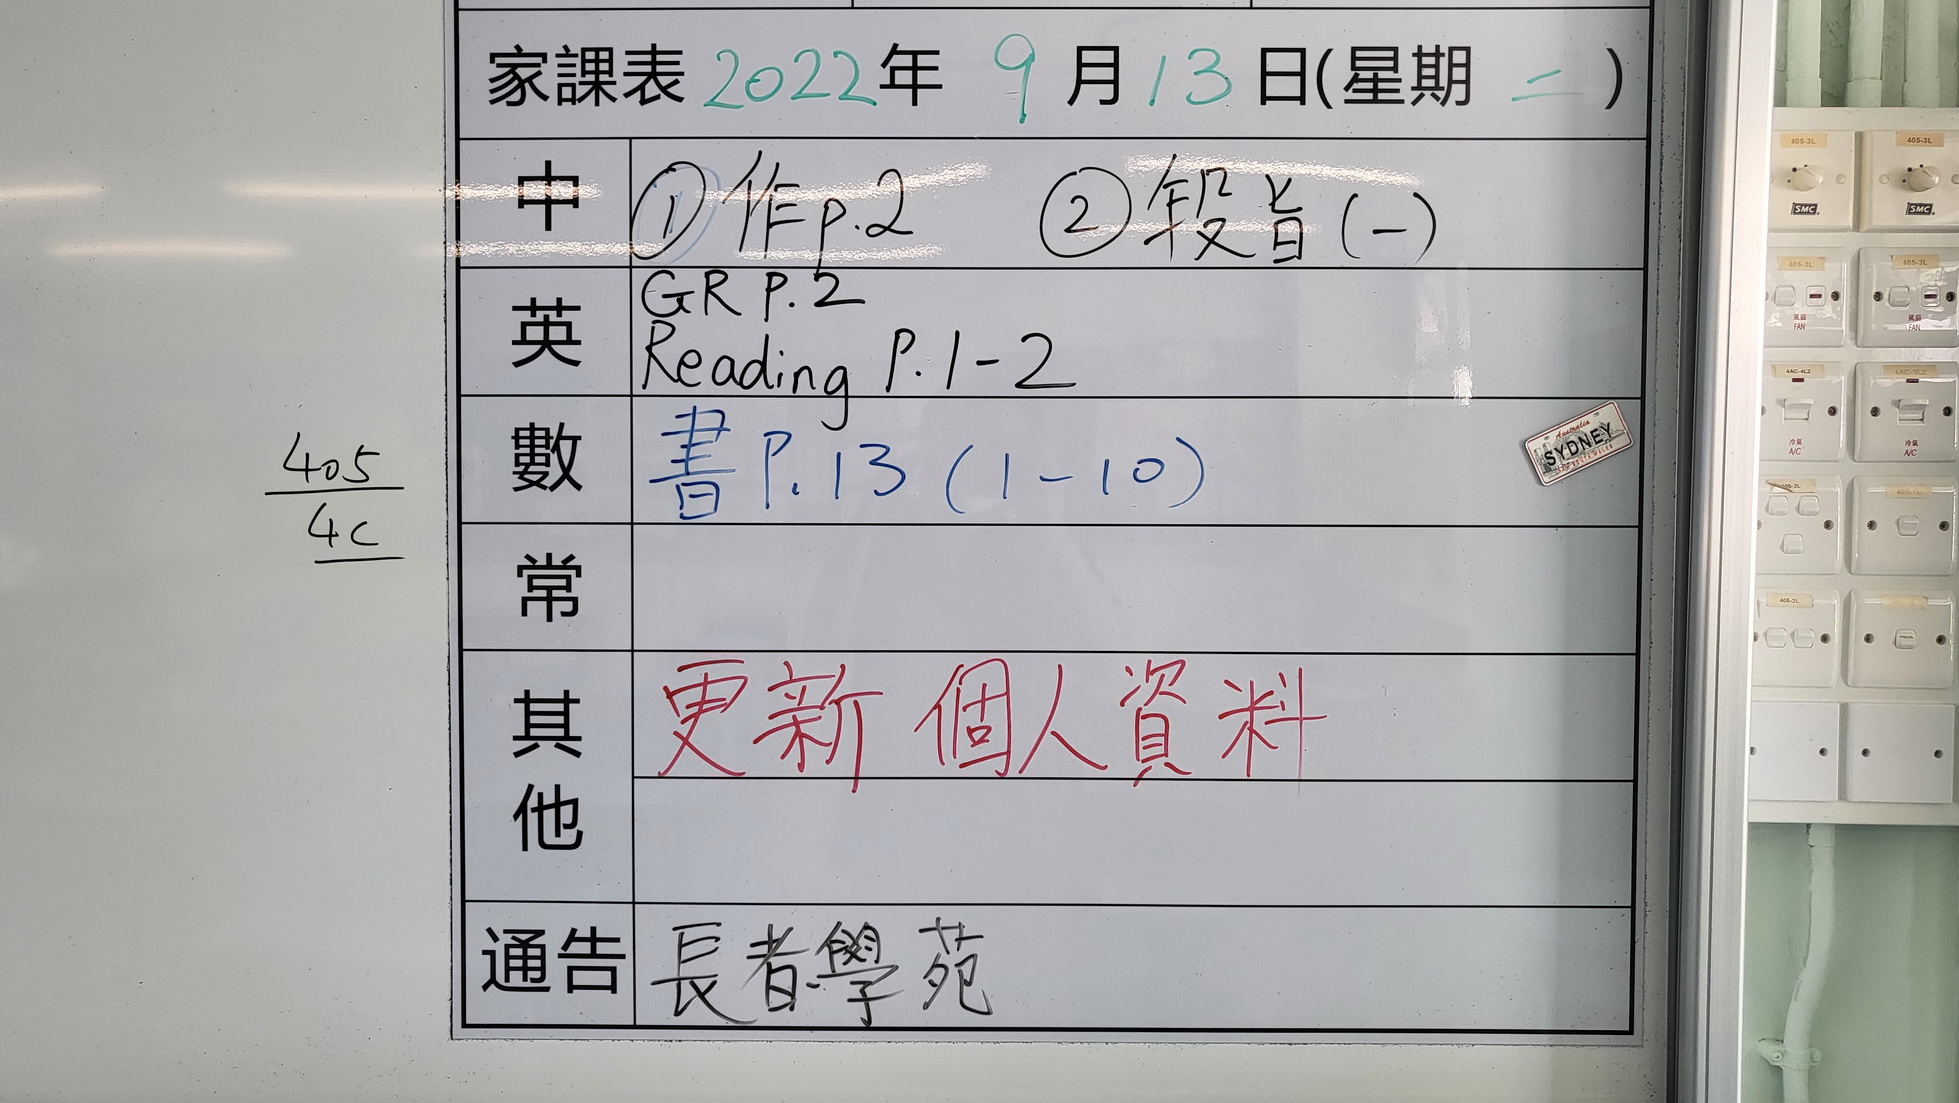 家課表 2022年 9月13日(星期 二)
中 ①作p.2 ②段旨(一)
英 GR P.2
Reading P.1-2
數 書P.13(1-10)
405
4C
Australia
SYDNEY
常
其他 更新個人資料
通告 長者學苑
405-3L
405-3L
SMC
SMC
405-3L
405-3L
風扇
FAN
風扇
FAN
4AC-4L2
冷氣
A/C
冷氣
A/C
405-2L